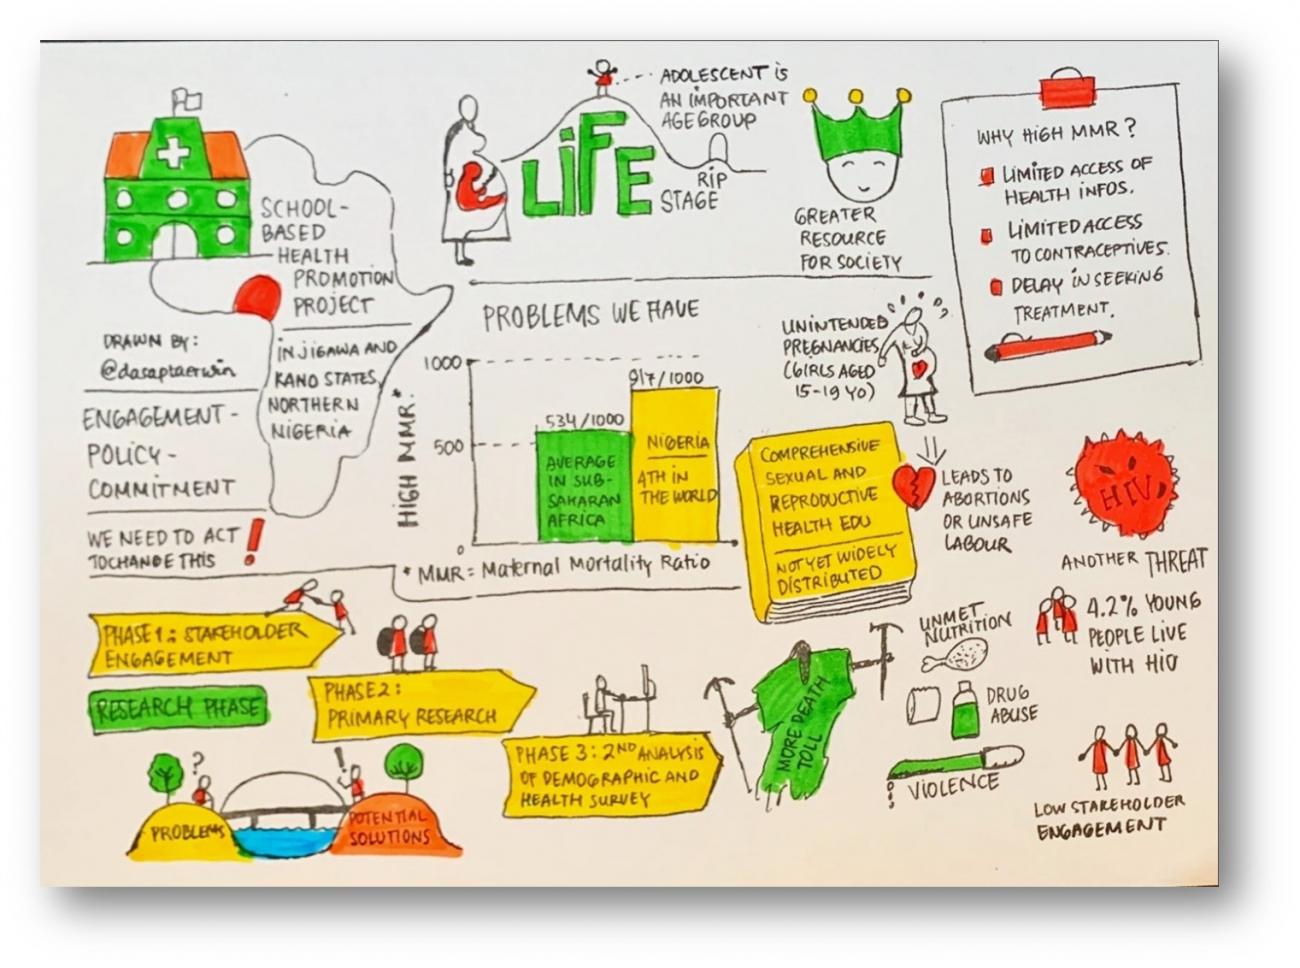 ADOLESCENT iS
AN IMPORTANT
AGE GROUP
LiFE
RiP
STAGE
GREATER
RESOURCE
FOR SOCIETY
WHY HIGH MMR?
LIMITED ACCESS OF
HEALTH INFOS.
LIMITED ACCESS
TO CONTRACEPTIVES.
DELAY iN SEEKING
TREATMENT.
SCHOOL-
BASED
HEALTH
PROMOTION
PROJECT
iN JIGAWA AND
KANO STATES,
NORTHERN
NIGERIA
DRAWN BY:
@dasaptaerwin
ENGAGEMENT-
POLICY-
COMMITMENT
WE NEED TO ACT
TO CHANGE THIS !
PROBLEMS WE HAVE
HIGH MMR.*
1000
500
0
534/1000
917/1000
AVERAGE
IN SUB-
SAHARAN
AFRICA
NIGERIA
4TH IN
THE WORLD
* MMR = Maternal Mortality Ratio
UNINTENDED
PREGNANCIES
(GIRLS AGED
15-19 YO)
LEADS TO
ABORTIONS
OR UNSAFE
LABOUR
COMPREHENSIVE
SEXUAL AND
REPRODUCTIVE
HEALTH EDU
NOT YET WIDELY
DISTRIBUTED
HIV
ANOTHER THREAT
4.2% YOUNG
PEOPLE LIVE
WITH HIV
UNMET
NUTRITION
DRUG
ABUSE
VIOLENCE
LOW STAKEHOLDER
ENGAGEMENT
MORE DEATH
TOLL
PHASE 1: STAKEHOLDER
ENGAGEMENT
RESEARCH PHASE
PHASE 2:
PRIMARY RESEARCH
PHASE 3: 2ND ANALYSIS
OF DEMOGRAPHIC AND
HEALTH SURVEY
?
!
PROBLEMS
POTENTIAL
SOLUTIONS